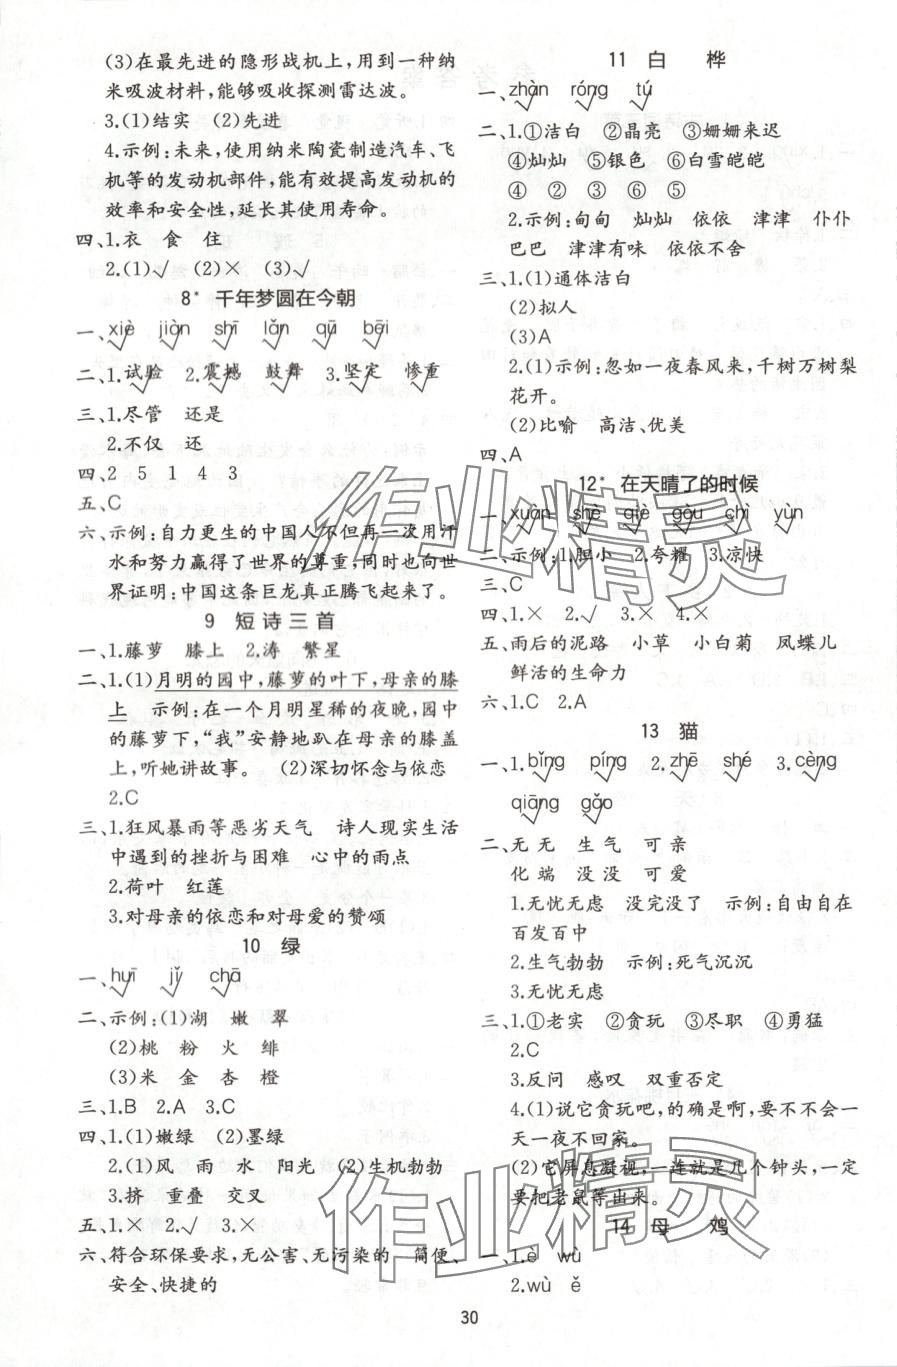 (3)在最先进的隐形战机上,用到一种纳
米吸波材料,能够吸收探测雷达波。
3.(1)结实 (2)先进
4.示例:未来,使用纳米陶瓷制造汽车、飞
机等的发动机部件,能有效提高发动机的
效率和安全性,延长其使用寿命。
四、1.衣 食 住
2.(1)√ (2)× (3)√
8* 千年梦圆在今朝
一、xiè√ jiàn√ shī√ lǎn√ qū√ bēi√
二、1.试验√ 2.震撼√ 鼓舞√ 3.坚定√ 惨重√
三、1.尽管 还是
2.不仅 还
四、2 5 1 4 3
五、C
六、示例:自力更生的中国人不但再一次用汗
水和努力赢得了世界的尊重,同时也向世
界证明:中国这条巨龙真正腾飞起来了。
9 短诗三首
一、1.藤萝 膝上 2.涛 繁星
二、1.(1)月明的园中,藤萝的叶下,母亲的膝
上 示例:在一个月明星稀的夜晚,园中
的藤萝下,“我”安静地趴在母亲的膝盖
上,听她讲故事。 (2)深切怀念与依恋
2.C
三、1.狂风暴雨等恶劣天气 诗人现实生活
中遇到的挫折与困难 心中的雨点
2.荷叶 红莲
3.对母亲的依恋和对母爱的赞颂
10 绿
一、huī√ jǐ√ chā√
二、示例:(1)湖 嫩 翠
(2)桃 粉 火 绯
(3)米 金 杏 橙
三、1.B 2.A 3.C
四、1.(1)嫩绿 (2)墨绿
2.(1)风 雨 水 阳光 (2)生机勃勃
3.挤 重叠 交叉
五、1.× 2.√ 3.×
六、符合环保要求,无公害、无污染的 简便、
安全、快捷的
11 白桦
一、zhàn√ róng√ tú√
二、1.①洁白 ②晶亮 ③姗姗来迟
④灿灿 ⑤银色 ⑥白雪皑皑
④ ② ③ ⑥ ⑤
2.示例:匋匋 灿灿 依依 津津 仆仆
巴巴 津津有味 依依不舍
三、1.(1)通体洁白
(2)拟人
(3)A
2.(1)示例:忽如一夜春风来,千树万树梨
花开。
(2)比喻 高洁、优美
四、A
12* 在天晴了的时候
一、xuàn√ shè√ qiè√ gòu√ chì√ yùn√
二、示例:1.胆小 2.夸耀 3.凉快
三、C
四、1.× 2.√ 3.× 4.×
五、雨后的泥路 小草 小白菊 凤蝶儿
鲜活的生命力
六、1.C 2.A
13 猫
一、1.bǐng√ píng√ 2.zhē√ shé√ 3.cèng√
qiāng√ gǎo√
二、无 无 生气 可亲
化 端 没 没 可爱
1.无忧无虑 没完没了 示例:自由自在
百发百中
2.生气勃勃 示例:死气沉沉
3.无忧无虑
三、1.①老实 ②贪玩 ③尽职 ④勇猛
2.C
3.反问 感叹 双重否定
4.(1)说它贪玩吧,的确是啊,要不怎么会一
天一夜不回家。
(2)它屏息凝视,一连就是几个钟头,一定
要把老鼠等出来。
14 母鸡
一、1.è wù
2.wù ě
30
作业精灵
作业精灵